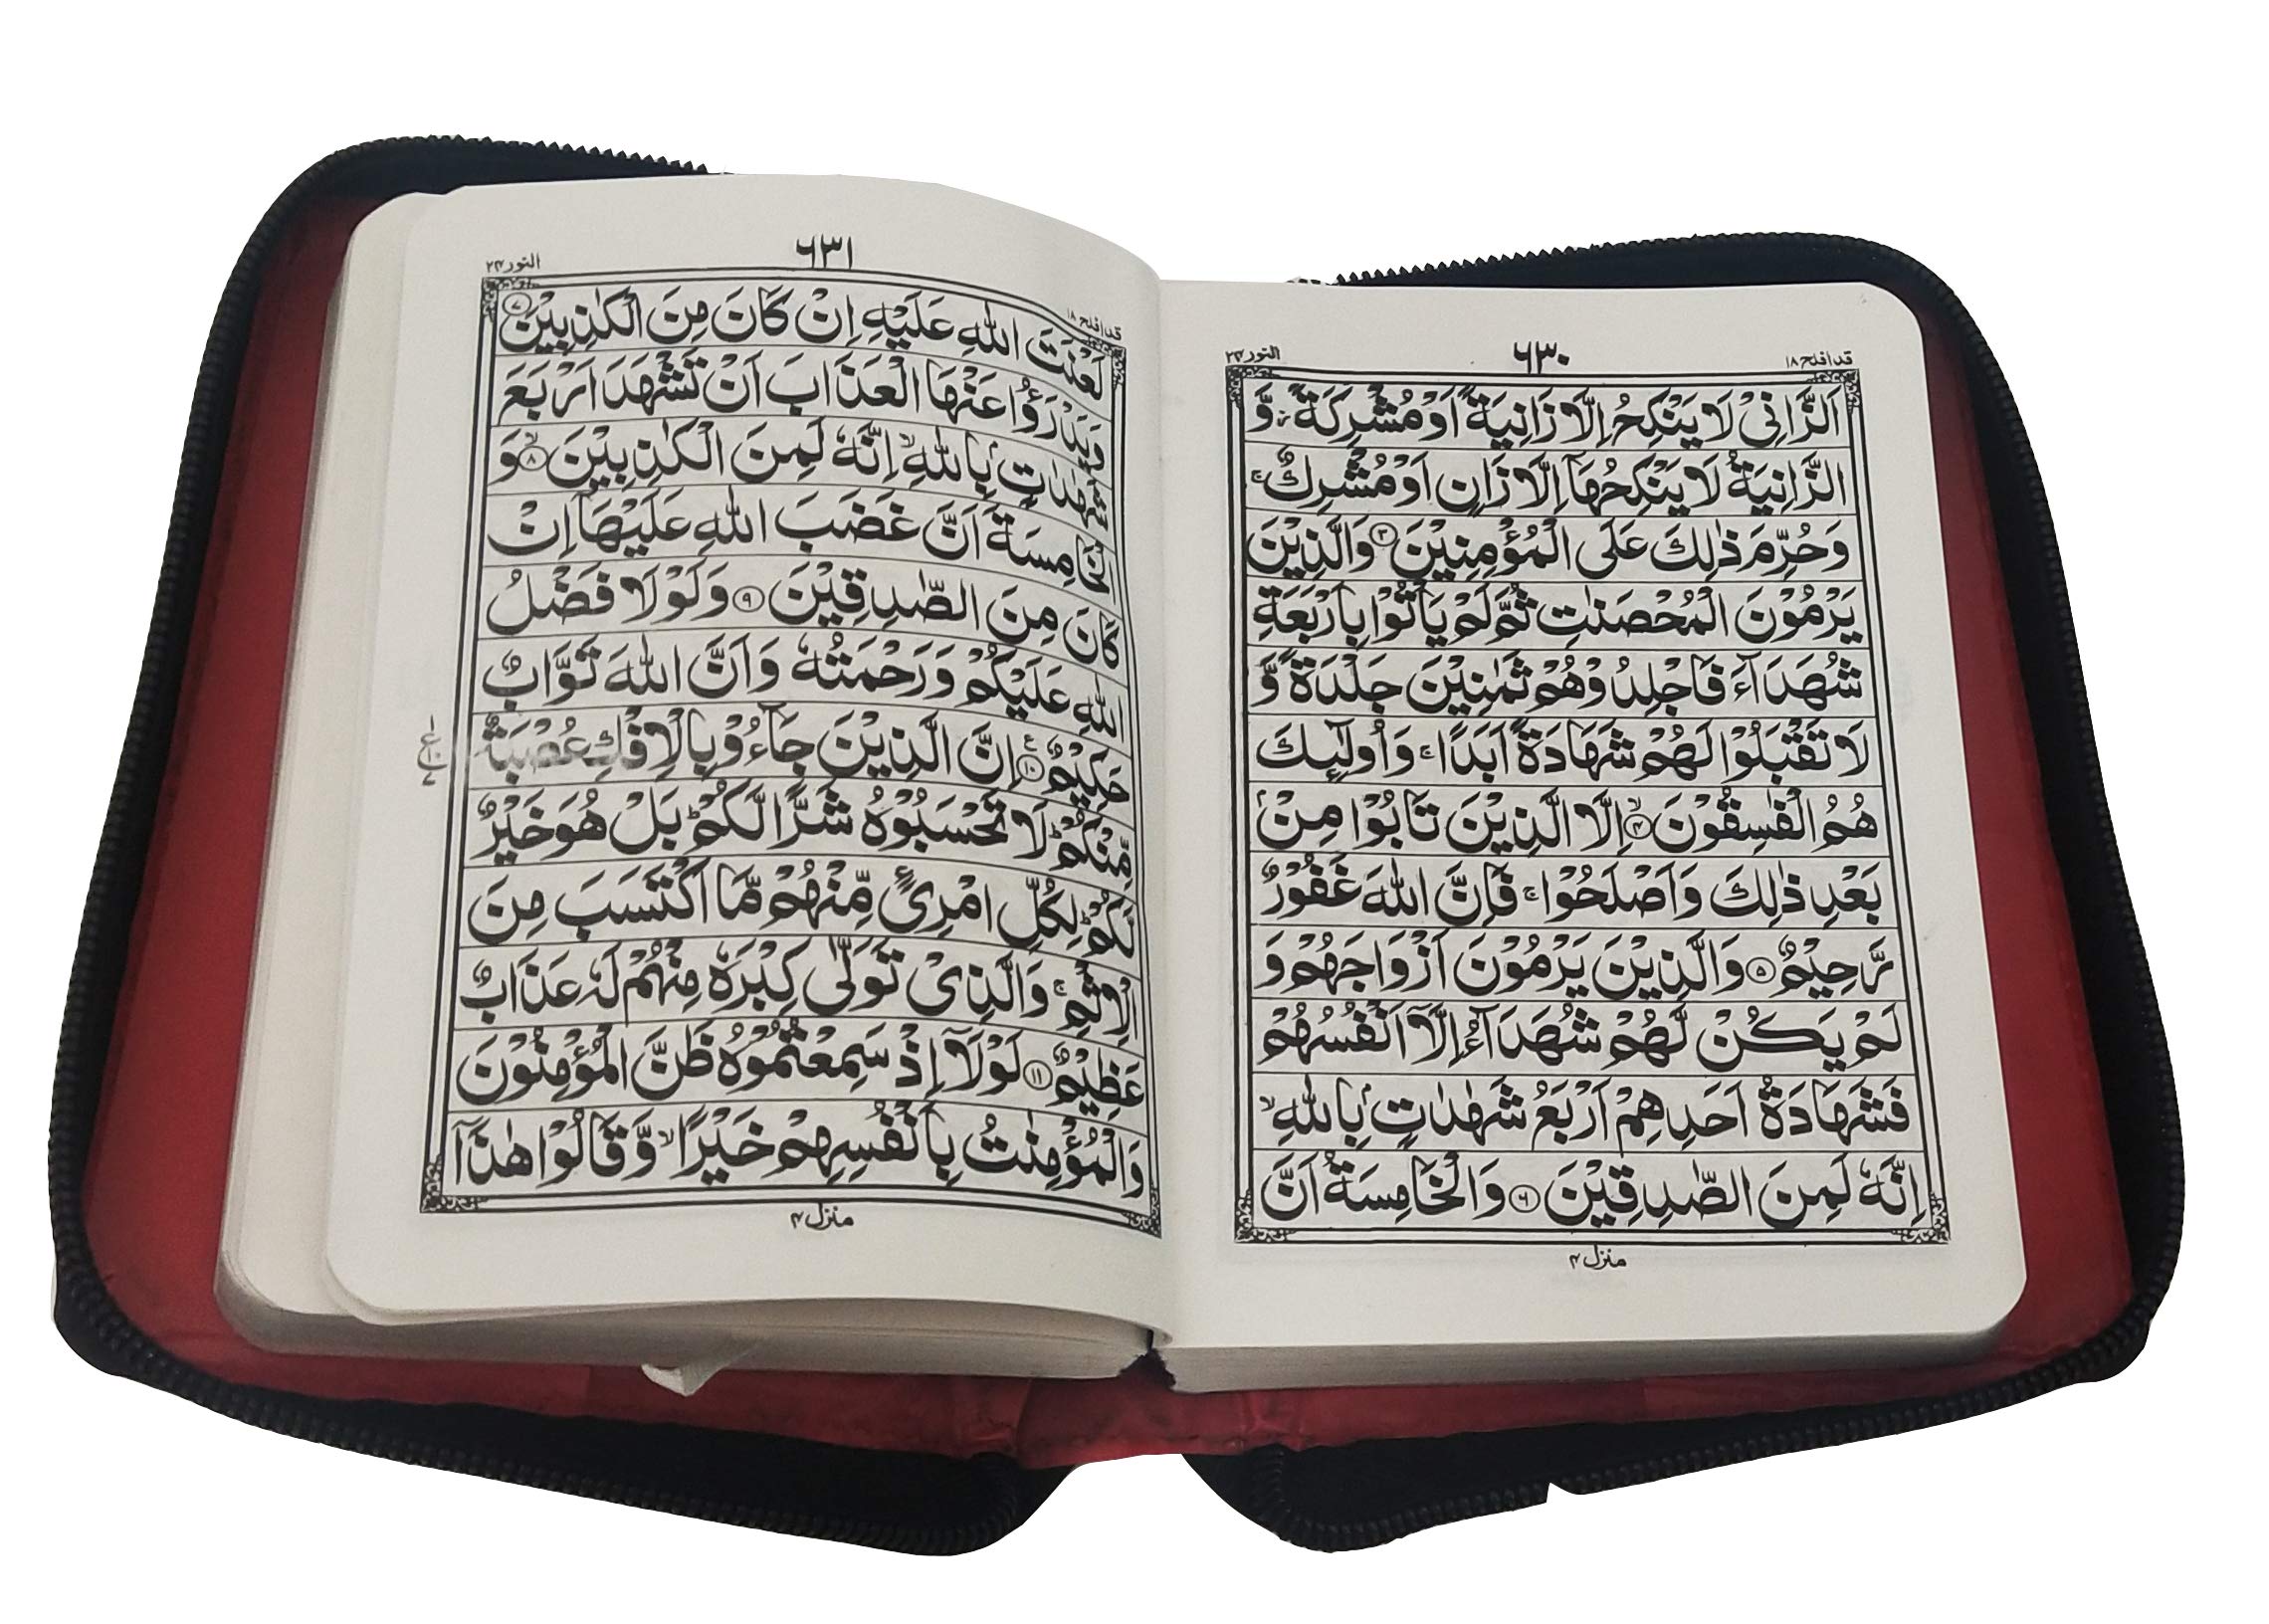 قد افلح ١٨
٦٣٠
النور ٢٤
اَلزَّانِیْ لَا یَنْكِحُ اِلَّا زَانِیَةً اَوْ مُشْرِكَةً ؗ وَّ
الزَّانِیَةُ لَا یَنْكِحُهَاۤ اِلَّا زَانٍ اَوْ مُشْرِكٌ ۚ
وَحُرِّمَ ذٰلِكَ عَلَی الْمُؤْمِنِیْنَ ۝٣ وَالَّذِیْنَ
یَرْمُوْنَ الْمُحْصَنٰتِ ثُمَّ لَمْ یَاْتُوْا بِاَرْبَعَةِ
شُهَدَآءَ فَاجْلِدُوْهُمْ ثَمٰنِیْنَ جَلْدَةً وَّ
لَا تَقْبَلُوْا لَهُمْ شَهَادَةً اَبَدًا ۚ وَاُولٰٓئِكَ
هُمُ الْفٰسِقُوْنَ ۙ۝٤ اِلَّا الَّذِیْنَ تَابُوْا مِنْۢ
بَعْدِ ذٰلِكَ وَاَصْلَحُوْا ۚ فَاِنَّ اللّٰهَ غَفُوْرٌ
رَّحِیْمٌ ۝٥ وَالَّذِیْنَ یَرْمُوْنَ اَزْوَاجَهُمْ وَ
لَمْ یَكُنْ لَّهُمْ شُهَدَآءُ اِلَّاۤ اَنْفُسُهُمْ
فَشَهَادَةُ اَحَدِهِمْ اَرْبَعُ شَهٰدٰتٍۭ بِاللّٰهِ ۙ
اِنَّهٗ لَمِنَ الصّٰدِقِیْنَ ۝٦ وَالْخَامِسَةُ اَنَّ
منزل ٤
قد افلح ١٨
٦٣١
النور ٢٤
لَعْنَتَ اللّٰهِ عَلَیْهِ اِنْ كَانَ مِنَ الْكٰذِبِیْنَ ۝٧
وَیَدْرَؤُا عَنْهَا الْعَذَابَ اَنْ تَشْهَدَ اَرْبَعَ
شَهٰدٰتٍۭ بِاللّٰهِ ۙ اِنَّهٗ لَمِنَ الْكٰذِبِیْنَ ۙ۝٨ وَ
الْخَامِسَةَ اَنَّ غَضَبَ اللّٰهِ عَلَیْهَاۤ اِنْ
كَانَ مِنَ الصّٰدِقِیْنَ ۝٩ وَلَوْلَا فَضْلُ
اللّٰهِ عَلَیْكُمْ وَرَحْمَتُهٗ وَاَنَّ اللّٰهَ تَوَّابٌ
حَكِیْمٌ ۝١٠ اِنَّ الَّذِیْنَ جَآءُوْ بِالْاِفْكِ عُصْبَةٌ
مِّنْكُمْ ؕ لَا تَحْسَبُوْهُ شَرًّا لَّكُمْ ؕ بَلْ هُوَ خَیْرٌ
لَّكُمْ ؕ لِكُلِّ امْرِئٍ مِّنْهُمْ مَّا اكْتَسَبَ مِنَ
الْاِثْمِ ۚ وَالَّذِیْ تَوَلّٰی كِبْرَهٗ مِنْهُمْ لَهٗ عَذَابٌ
عَظِیْمٌ ۝١١ لَوْلَاۤ اِذْ سَمِعْتُمُوْهُ ظَنَّ الْمُؤْمِنُوْنَ
وَالْمُؤْمِنٰتُ بِاَنْفُسِهِمْ خَیْرًا ۙ وَّقَالُوْا هٰذَاۤ
منزل ٤